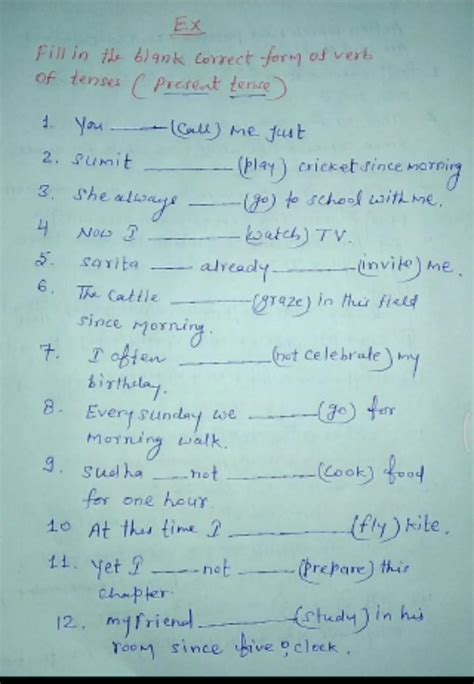 Ex
Fill in the blank correct form of verb
of tenses (Present tense)
1. You ______ (call) me just
2. Sumit ______ (play) cricket since morning
3. She always ______ (go) to school with me.
4 Now I ______ (watch) TV.
5. Sarita ____ already ______ (invite) me.
6. The Cattle ______ (graze) in this field
since morning.
7. I often ______ (not celebrate) my
birthday.
8. Every sunday we ______ (go) for
morning walk.
9. Sudha ____ not ______ (cook) food
for one hour.
10 At this time I ______ (fly) kite.
11. Yet I ____ not ______ (prepare) this
chapter.
12. my friend ______ (study) in his
room since five o,clock.